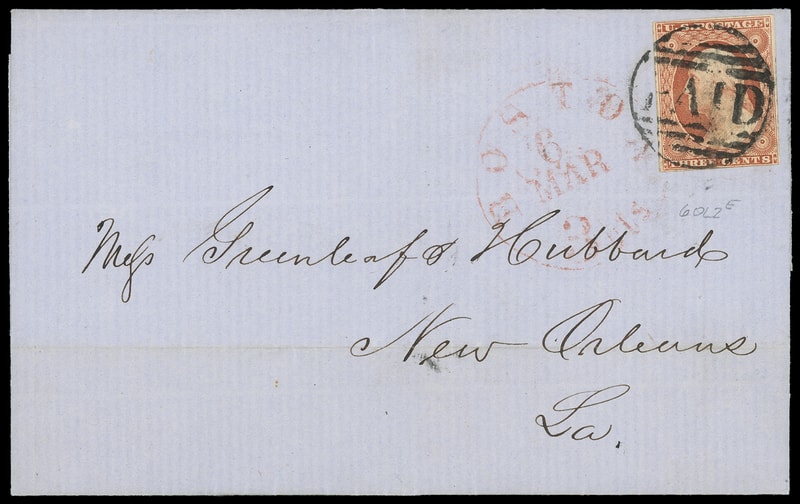 U.S. POSTAGE
PAID
THREE CENTS
BOSTON
6
MAR
6OL2E
Mess Greenleaf & Hubbard
New Orleans
La.